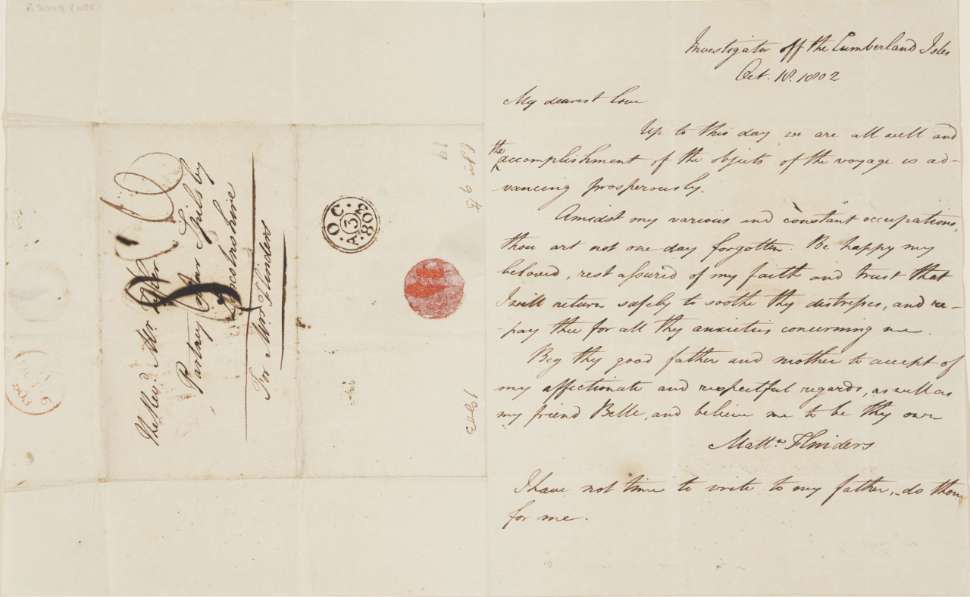 Investigator off the Cumberland Isles
Oct. 18. 1802
My dearest love
Up to this day, we are all well and
the accomplishment of the objects of the voyage is ad-
vancing prosperously.
Amidst my various and constant occupations,
thou art not one day forgotten. Be happy my
beloved, rest assured of my faith and trust that
I will return safely to soothe thy distresses, and re-
-pay thee for all thy anxieties concerning me.
Beg thy good father and mother to accept of
my affectionate and respectful regards, as well as
my friend Belle, and believe me to be thy own
Mattw. Flinders
I have not time to write to my father, do thou
for me.
The Revd. Mr. Tyler
Partney near Spilsby
Lincolnshire
For Mrs. Flinders
8
OC
3
803
1802